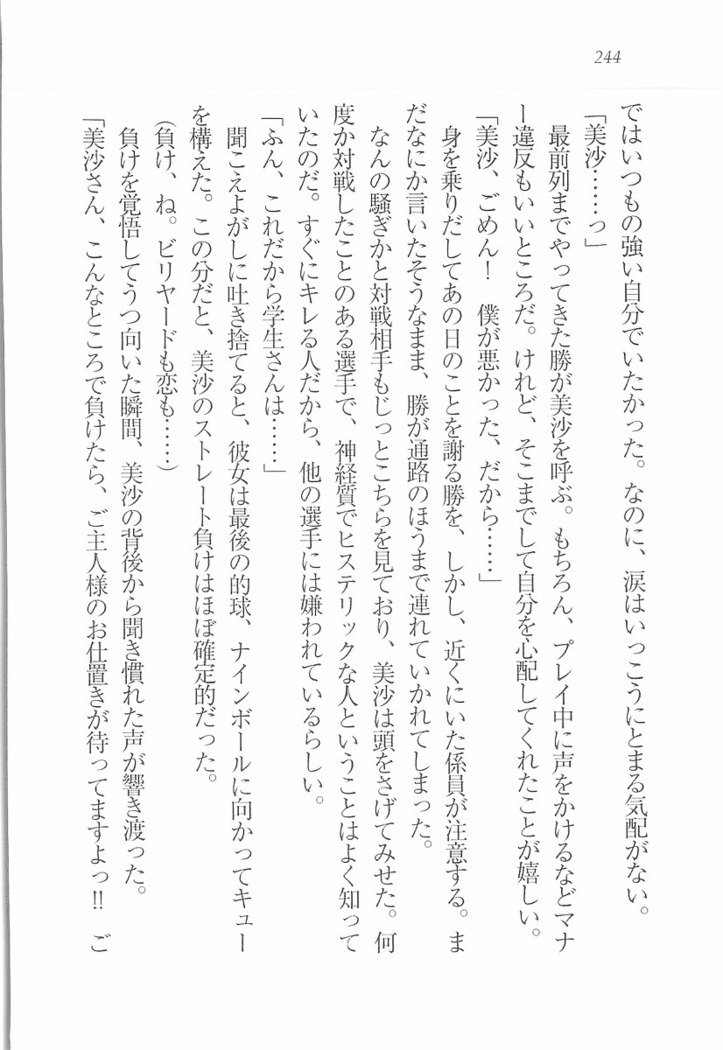 244
ではいつもの強い自分でいたかった。なのに、涙はいっこうにとまる気配がない。
「美沙……っ」
最前列までやってきた勝が美沙を呼ぶ。もちろん、プレイ中に声をかけるなどマナ
ー違反もいいところだ。けれど、そこまでして自分を心配してくれたことが嬉しい。
「美沙、ごめん！　僕が悪かった、だから……」
身を乗りだしてあの日のことを謝る勝を、しかし、近くにいた係員が注意する。ま
だなにか言いたそうなまま、勝が通路のほうまで連れていかれてしまった。
なんの騒ぎかと対戦相手もじっとこちらを見ており、美沙は頭をさげてみせた。何
度か対戦したことのある選手で、神経質でヒステリックな人ということはよく知って
いたのだ。すぐにキレる人だから、他の選手には嫌われているらしい。
「ふん、これだから学生さんは……」
聞こえよがしに吐き捨てると、彼女は最後の的球、ナインボールに向かってキュー
を構えた。この分だと、美沙のストレート負けはほぼ確定的だった。
（負け、ね。ビリヤードも恋も……）
負けを覚悟してうつ向いた瞬間、美沙の背後から聞き慣れた声が響き渡った。
「美沙さん、こんなところで負けたら、ご主人様のお仕置きが待ってますよっ!!　ご